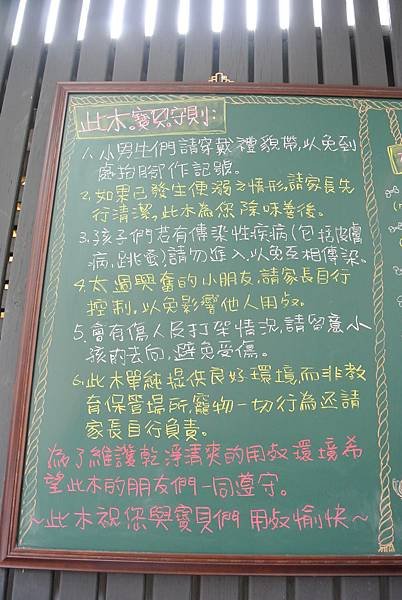 此木寶貝守則:
1.小男生們請穿戴禮貌帶,以免到
處抬腳作記號。
2.如果已發生便溺之情形,請家長先
行清潔,此木為您除味善後。
3.孩子們若有傳染性疾病(包括皮膚
病,跳蚤)請勿進入,以免互相傳染。
4.太過興奮的小朋友,請家長自行
控制,以免影響他人用餐。
5.會有傷人及打架情況,請留意小
孩的去向,避免受傷。
6.此木單純提供良好環境,而非教
育保管場所,寵物一切行為還請
家長自行負責。
為了維護乾淨清爽的用餐環境希
望此木的朋友們一同遵守。
~此木祝您與寶貝們 用餐愉快~